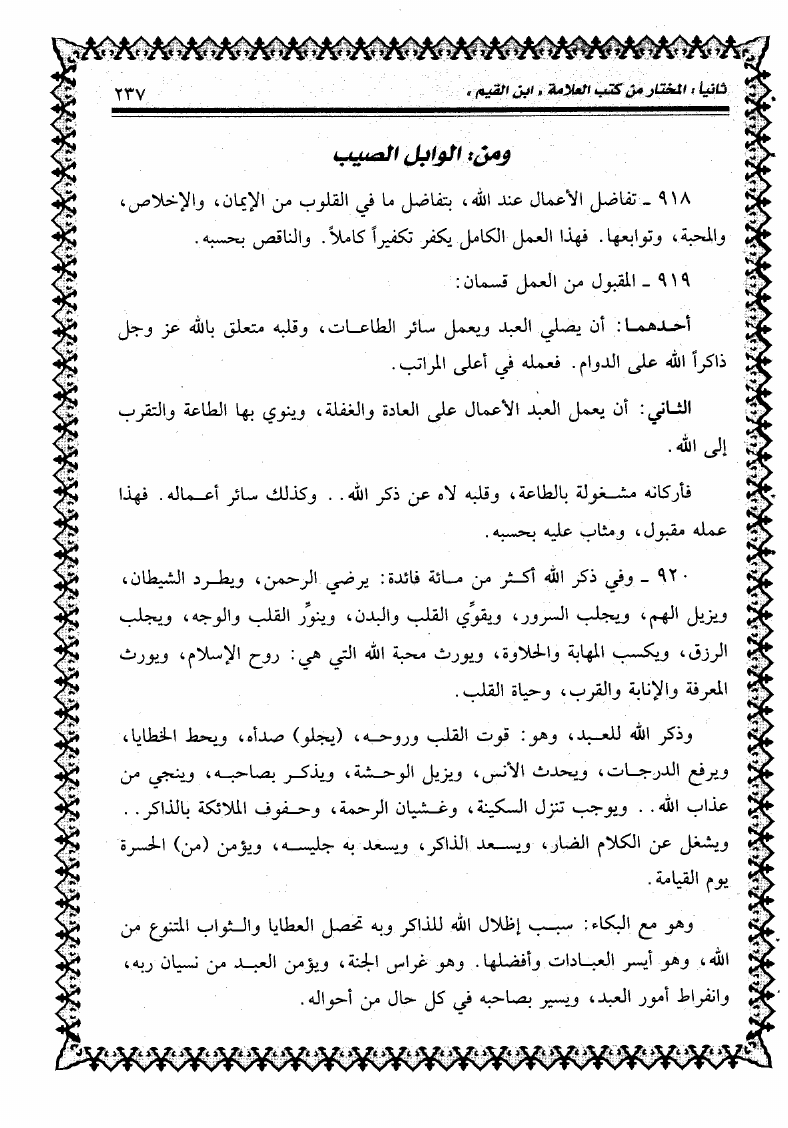 ثانياً : المختار من كتب العلامة « ابن القيم » ٢٣٧
ومن: الوابل الصيب
٩١٨ ـ تفاضل الأعمال عند الله، بتفاضل ما في القلوب من الإيمان، والإخلاص،
والمحبة، وتوابعها. فهذا العمل الكامل يكفر تكفيراً كاملاً. والناقص بحسبه.
٩١٩ ـ المقبول من العمل قسمان:
أحدهما: أن يصلي العبد ويعمل سائر الطاعات، وقلبه متعلق بالله عز وجل
ذاكراً الله على الدوام. فعمله في أعلى المراتب.
الثاني: أن يعمل العبد الأعمال على العادة والغفلة، وينوي بها الطاعة والتقرب
إلى الله.
فأركانه مشغولة بالطاعة، وقلبه لاه عن ذكر الله.. وكذلك سائر أعماله. فهذا
عمله مقبول، ومثاب عليه بحسبه.
٩٢٠ ـ وفي ذكر الله أكثر من مائة فائدة: يرضي الرحمن، ويطرد الشيطان،
ويزيل الهم، ويجلب السرور، ويقوِّي القلب والبدن، وينوِّر القلب والوجه، ويجلب
الرزق، ويكسب المهابة والحلاوة، ويورث محبة الله التي هي: روح الإسلام، ويورث
المعرفة والإنابة والقرب، وحياة القلب.
وذكر الله للعبد، وهو: قوت القلب وروحه، (يجلو) صدأه، ويحط الخطايا،
ويرفع الدرجات، ويحدث الأنس، ويزيل الوحشة، ويذكر بصاحبه، وينجي من
عذاب الله.. ويوجب تنزل السكينة، وغشيان الرحمة، وحفوف الملائكة بالذاكر..
ويشغل عن الكلام الضار، ويسعد الذاكر، ويسعد به جليسه، ويؤمن (من) الحسرة
يوم القيامة.
وهو مع البكاء: سبب إظلال الله للذاكر وبه تحصل العطايا والثواب المتنوع من
الله، وهو أيسر العبادات وأفضلها. وهو غراس الجنة، ويؤمن العبد من نسيان ربه،
وانفراط أمور العبد، ويسير بصاحبه في كل حال من أحواله.